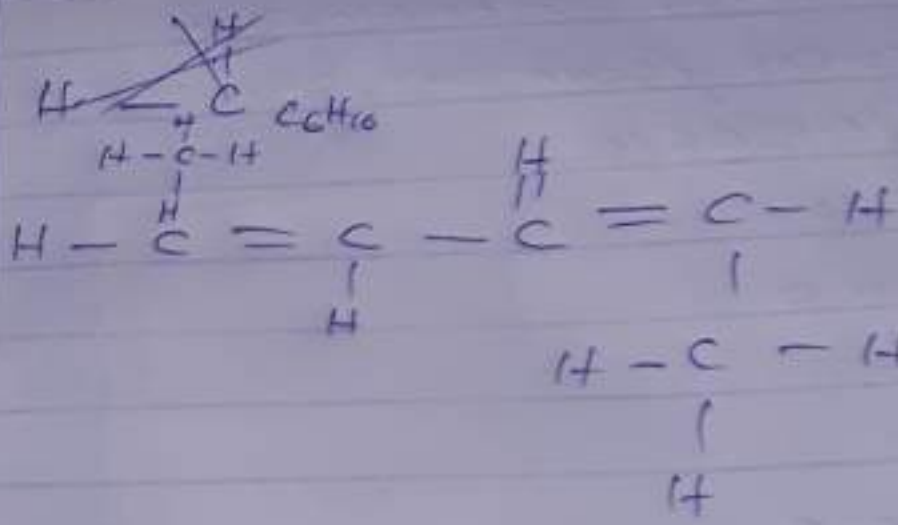 H
H - C C6H10
H
H - C - H
H
H
H - C = C - C = C - H
H
H - C - H
H